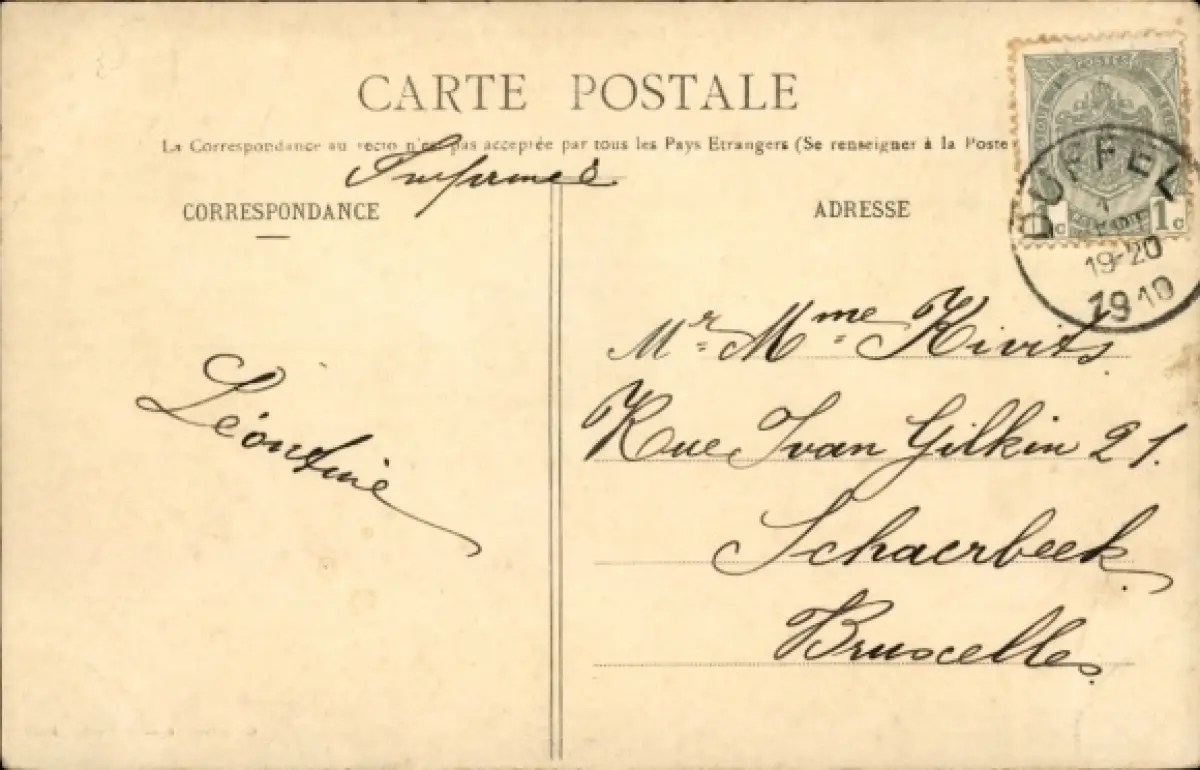 CARTE POSTALE
La Correspondance au recto n'est pas acceptée par tous les Pays Etrangers (Se renseigner à la Poste
Imprimés
CORRESPONDANCE
ADRESSE
POSTES
1c 1c
DUFFEL
19-20
1910
Mr Mme Kivits
Rue Ivan Gilkin 21.
Schaerbeek
Bruxelles.
Léontine